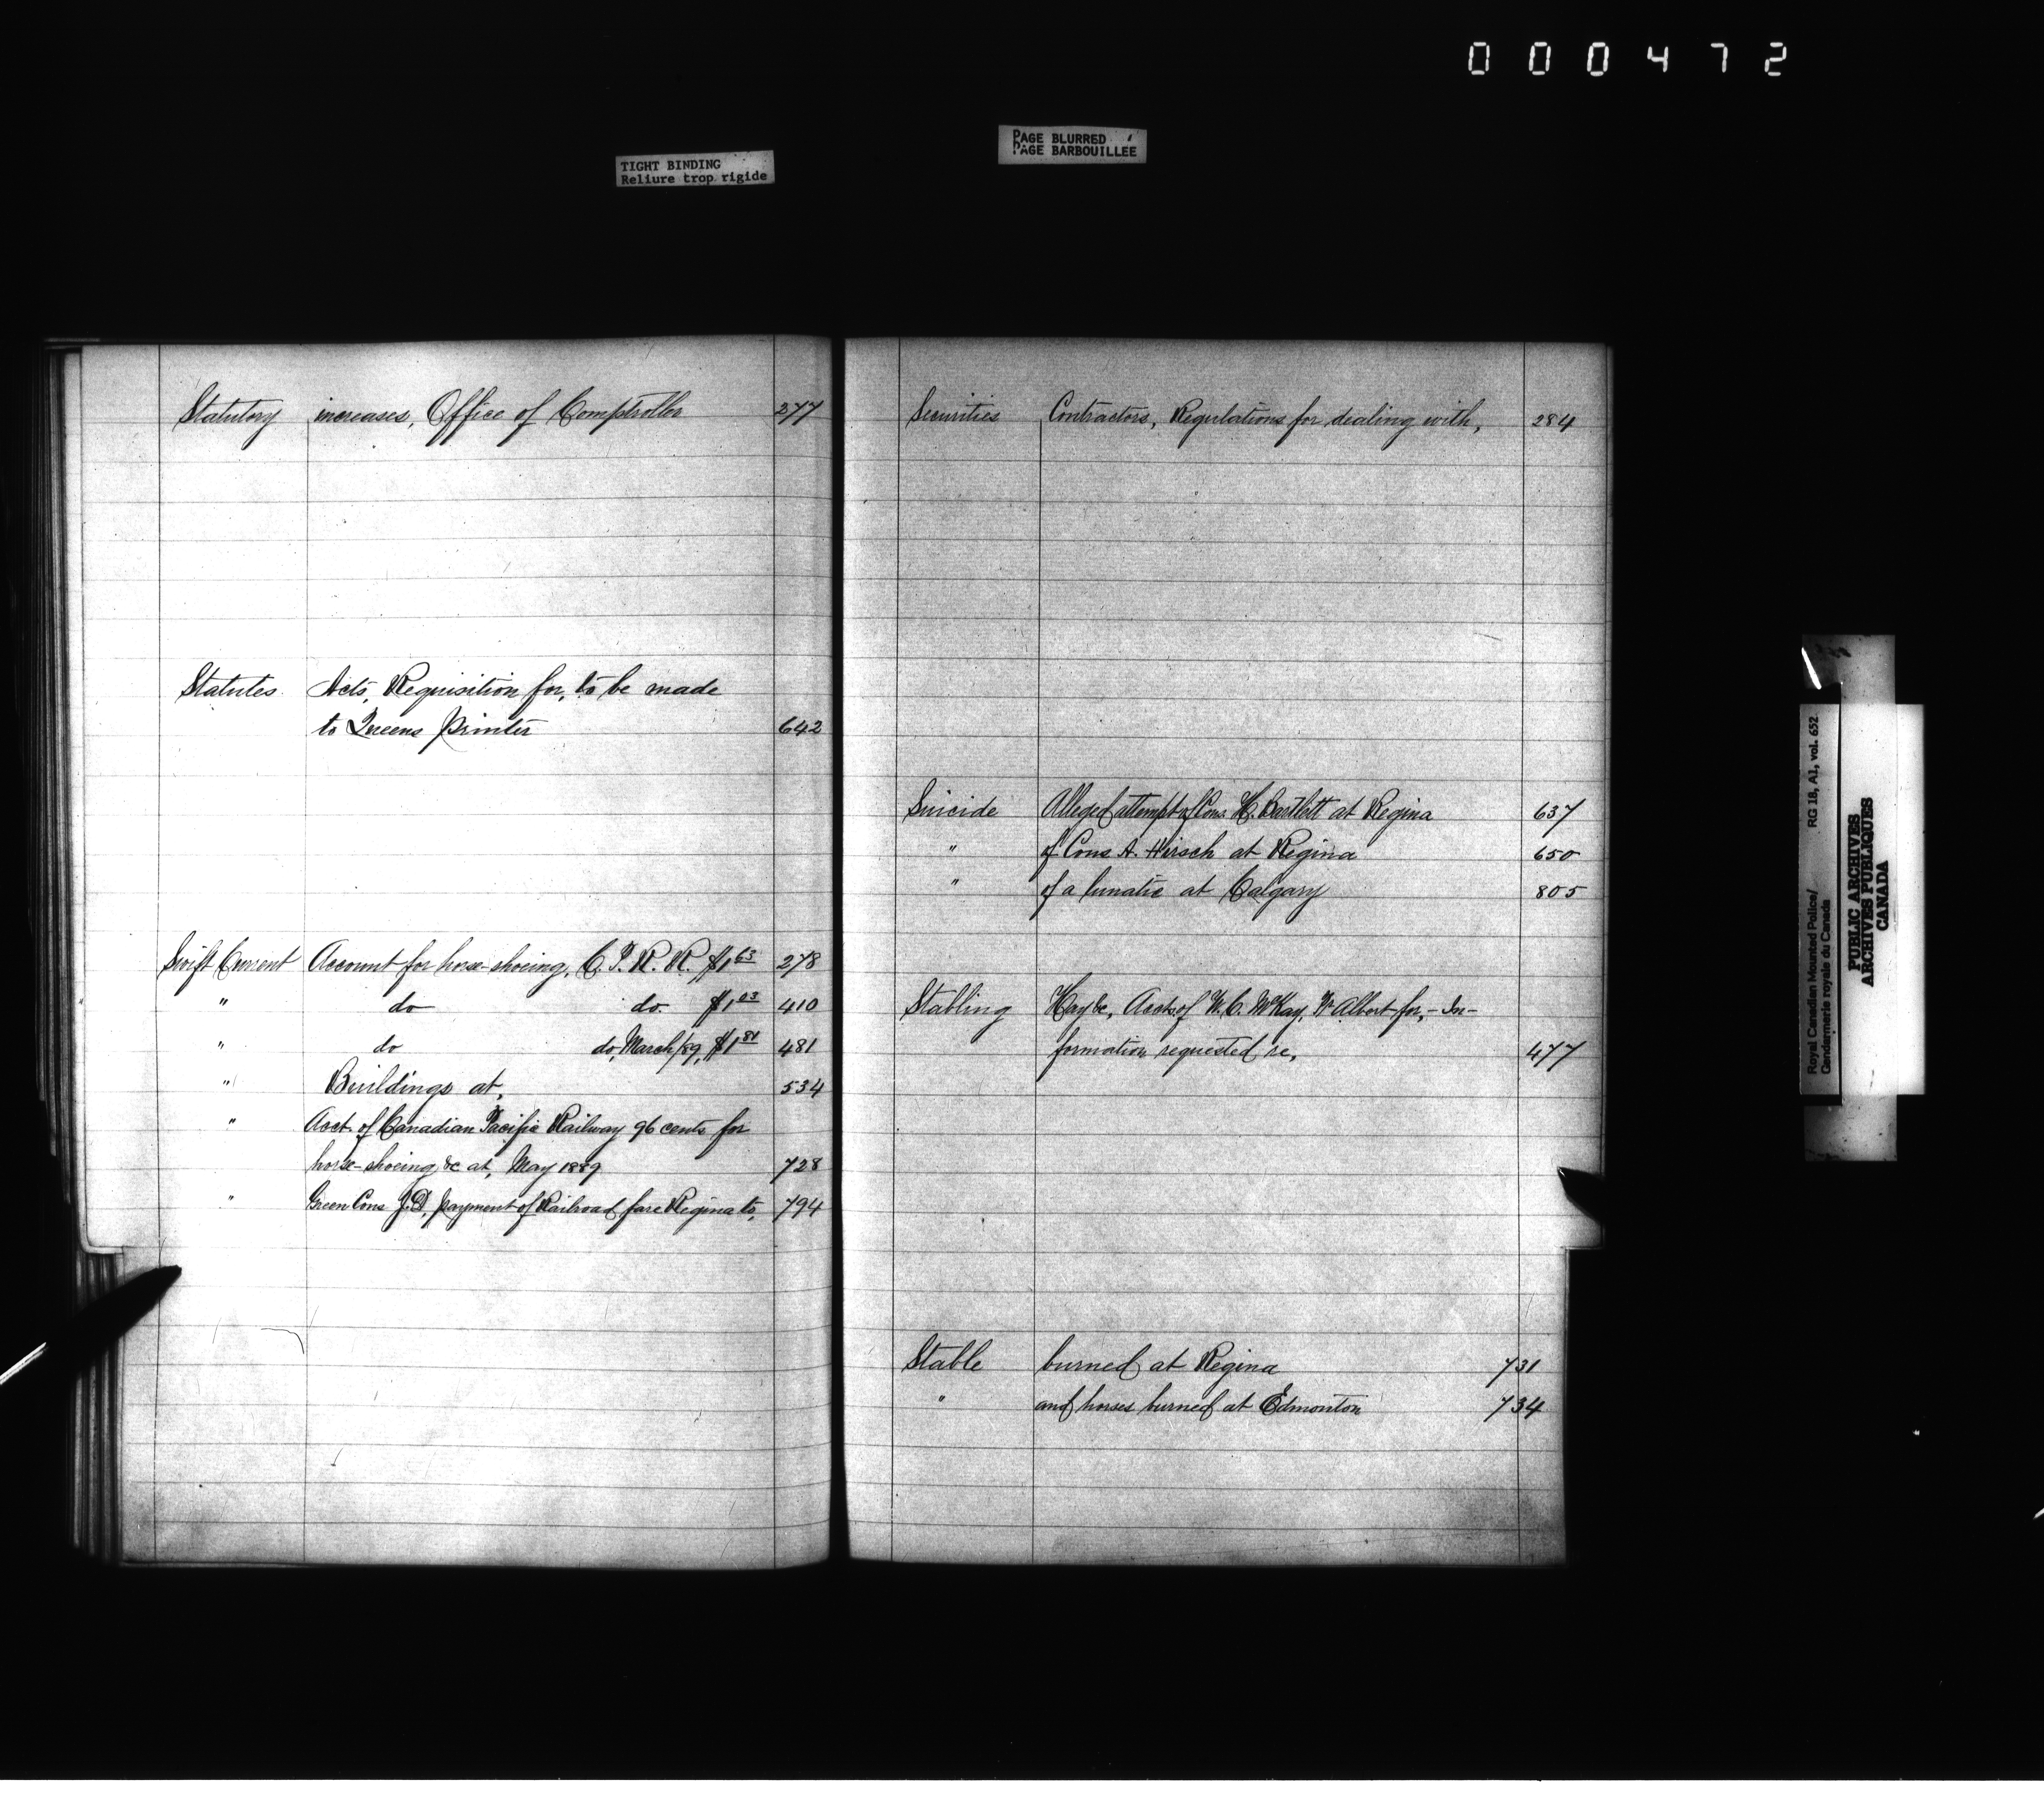 000472
PAGE BLURRED
PAGE BARBOUILLÉE
TIGHT BINDING
Reliure trop rigide
Statutory increases, Office of Comptroller 277
Statutes Acts, Requisition for, to be made
to Queens Printer 642
Swift Current Account for horse-shoeing, C. P. R. R. $1 63 278
" do do. $1 03 410
" do do, March/89, $1 81 481
" Buildings at, 534
" Acct. of Canadian Pacific Railway 96 cents for
horse-shoeing &c at, May 1889 728
" Green Cons J.D, payment of Railroad fare Regina to, 794
Securities Contractors, Regulations for dealing with, 284
Suicide Alleged attempt of Cons H. Bartlett at Regina 637
" of Cons A. Hirsch at Regina 650
" of a lunatic at Calgary 805
Stabling Hay &c, Accts of W. C. McKay, Pr Albert for, - In-
formation requested re, 477
Stable burned at Regina 731
" and horses burned at Edmonton 734
Royal Canadian Mounted Police/ RG 18, A1, vol. 652
Gendarmerie royale du Canada
PUBLIC ARCHIVES
ARCHIVES PUBLIQUES
CANADA